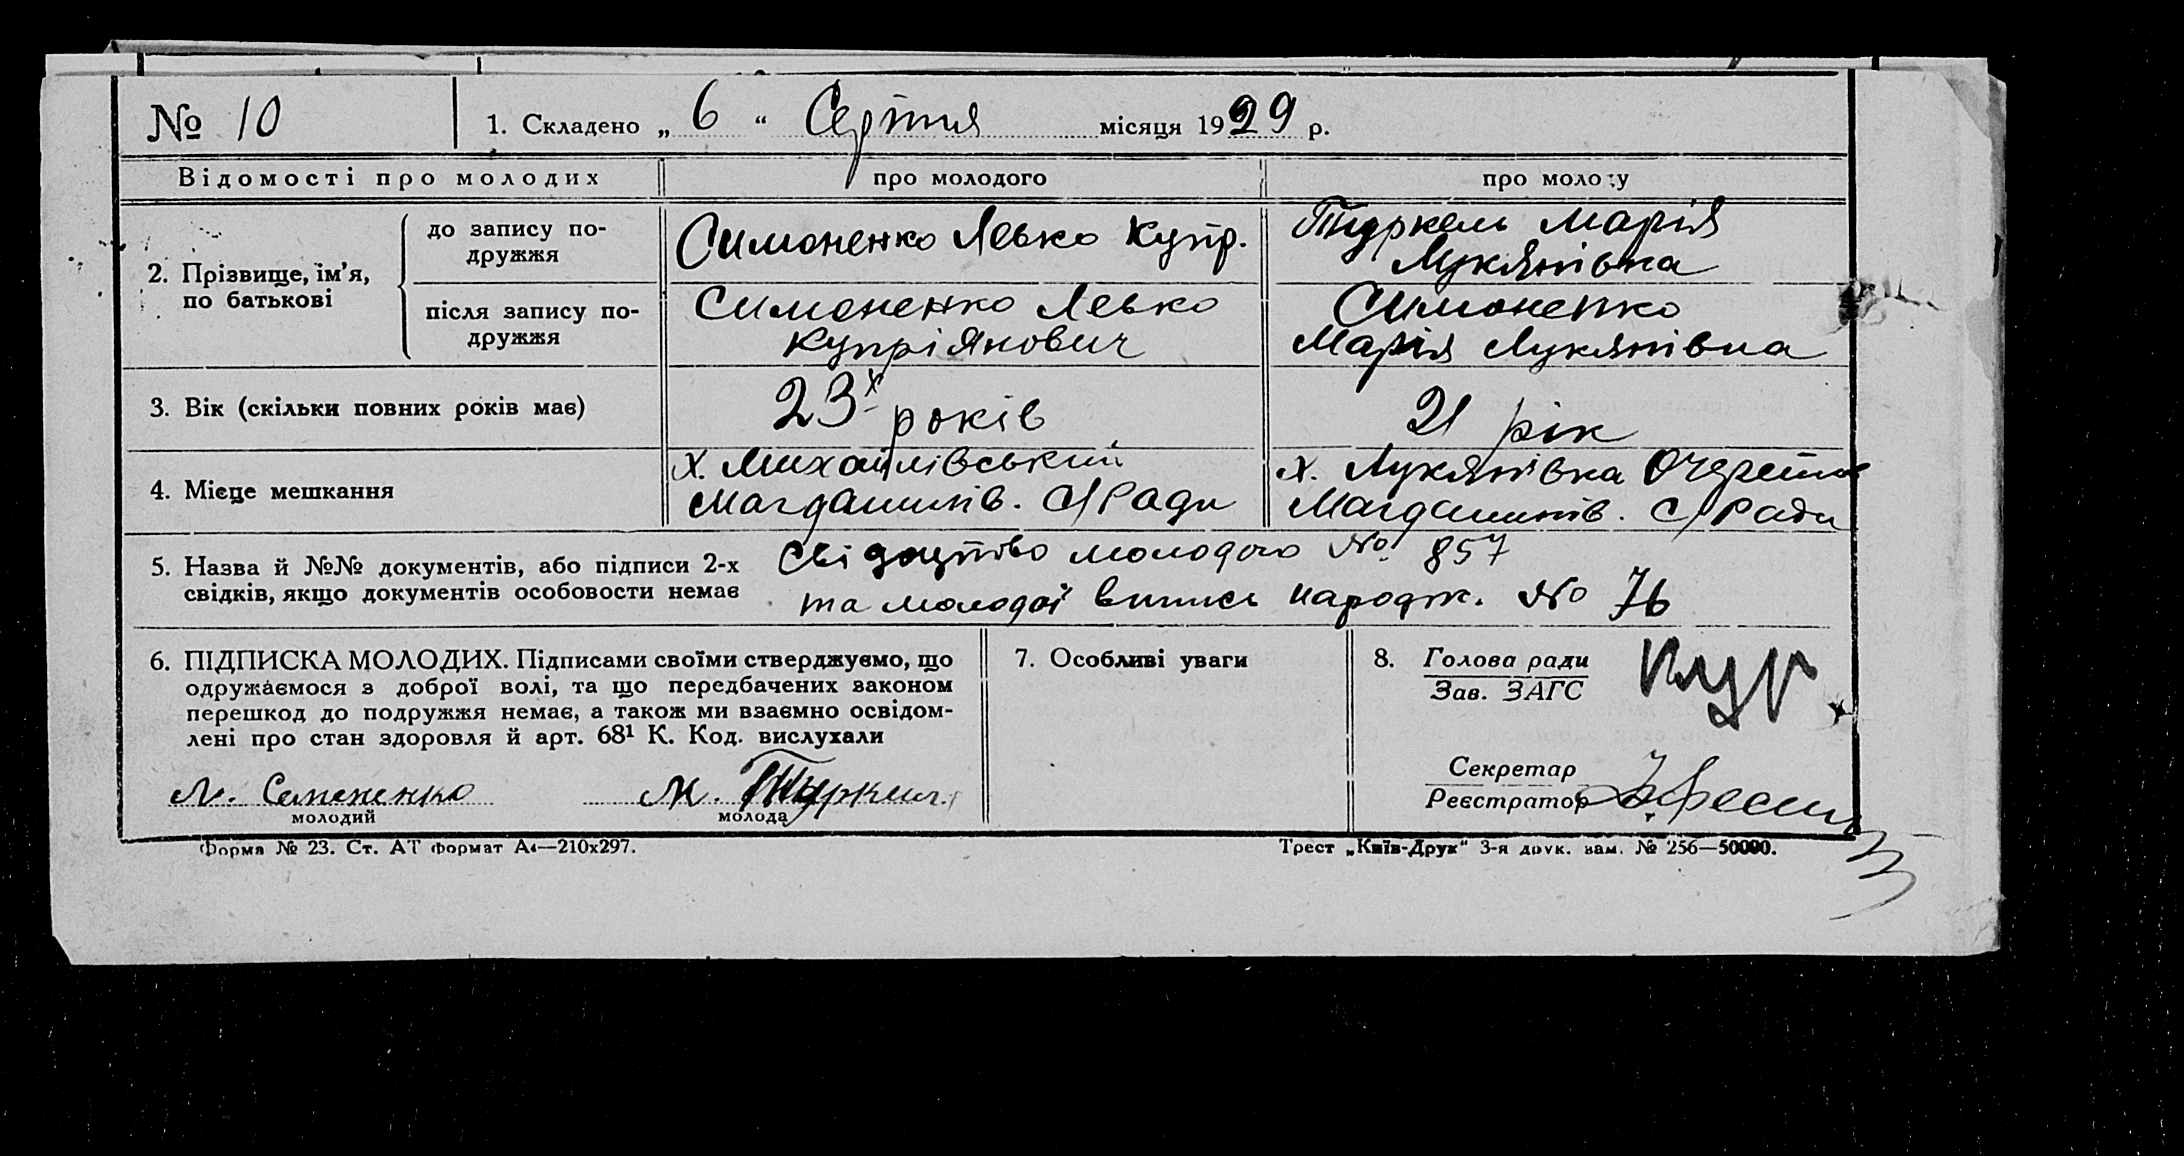 № 10
1. Складено „ 6 “ Серпня місяця 1929 р.
Відомості про молодих
про молодого
про молоду
2. Прізвище, ім’я, по батькові
до запису подружжя
Симоненко Левко Купр.
Туркель Марія
Лукянівна
після запису подружжя
Симоненко Левко
Купріянович
Симоненко
Марія Лукянівна
3. Вік (скільки повних років має)
23х років
21 рік
4. Місце мешкання
х. Михайлівський
Магдалинів. С/Ради
х. Лукянівка
Магдалинів. С/Ради
5. Назва й №№ документів, або підписи 2-х
свідків, якщо документів особовости немає
Свідоцтво молодого № 857
та молодої випись народж. № 76
6. ПІДПИСКА МОЛОДИХ. Підписами своїми стверджуємо, що
одружаємося з доброї волі, та що передбачених законом
перешкод до подружжя немає, а також ми взаємно освідом-
лені про стан здоровля й арт. 68¹ К. Код. вислухали
Л. Семененко
молодий
М.
молода
7. Особливі уваги
8. Голова ради
Зав. ЗАГС
Секретар
Реєстратор
Форма № 23. Ст. АТ формат А4—210x297.
Трест „Київ-Друк“ 3-я друк. зам. № 256—50000.